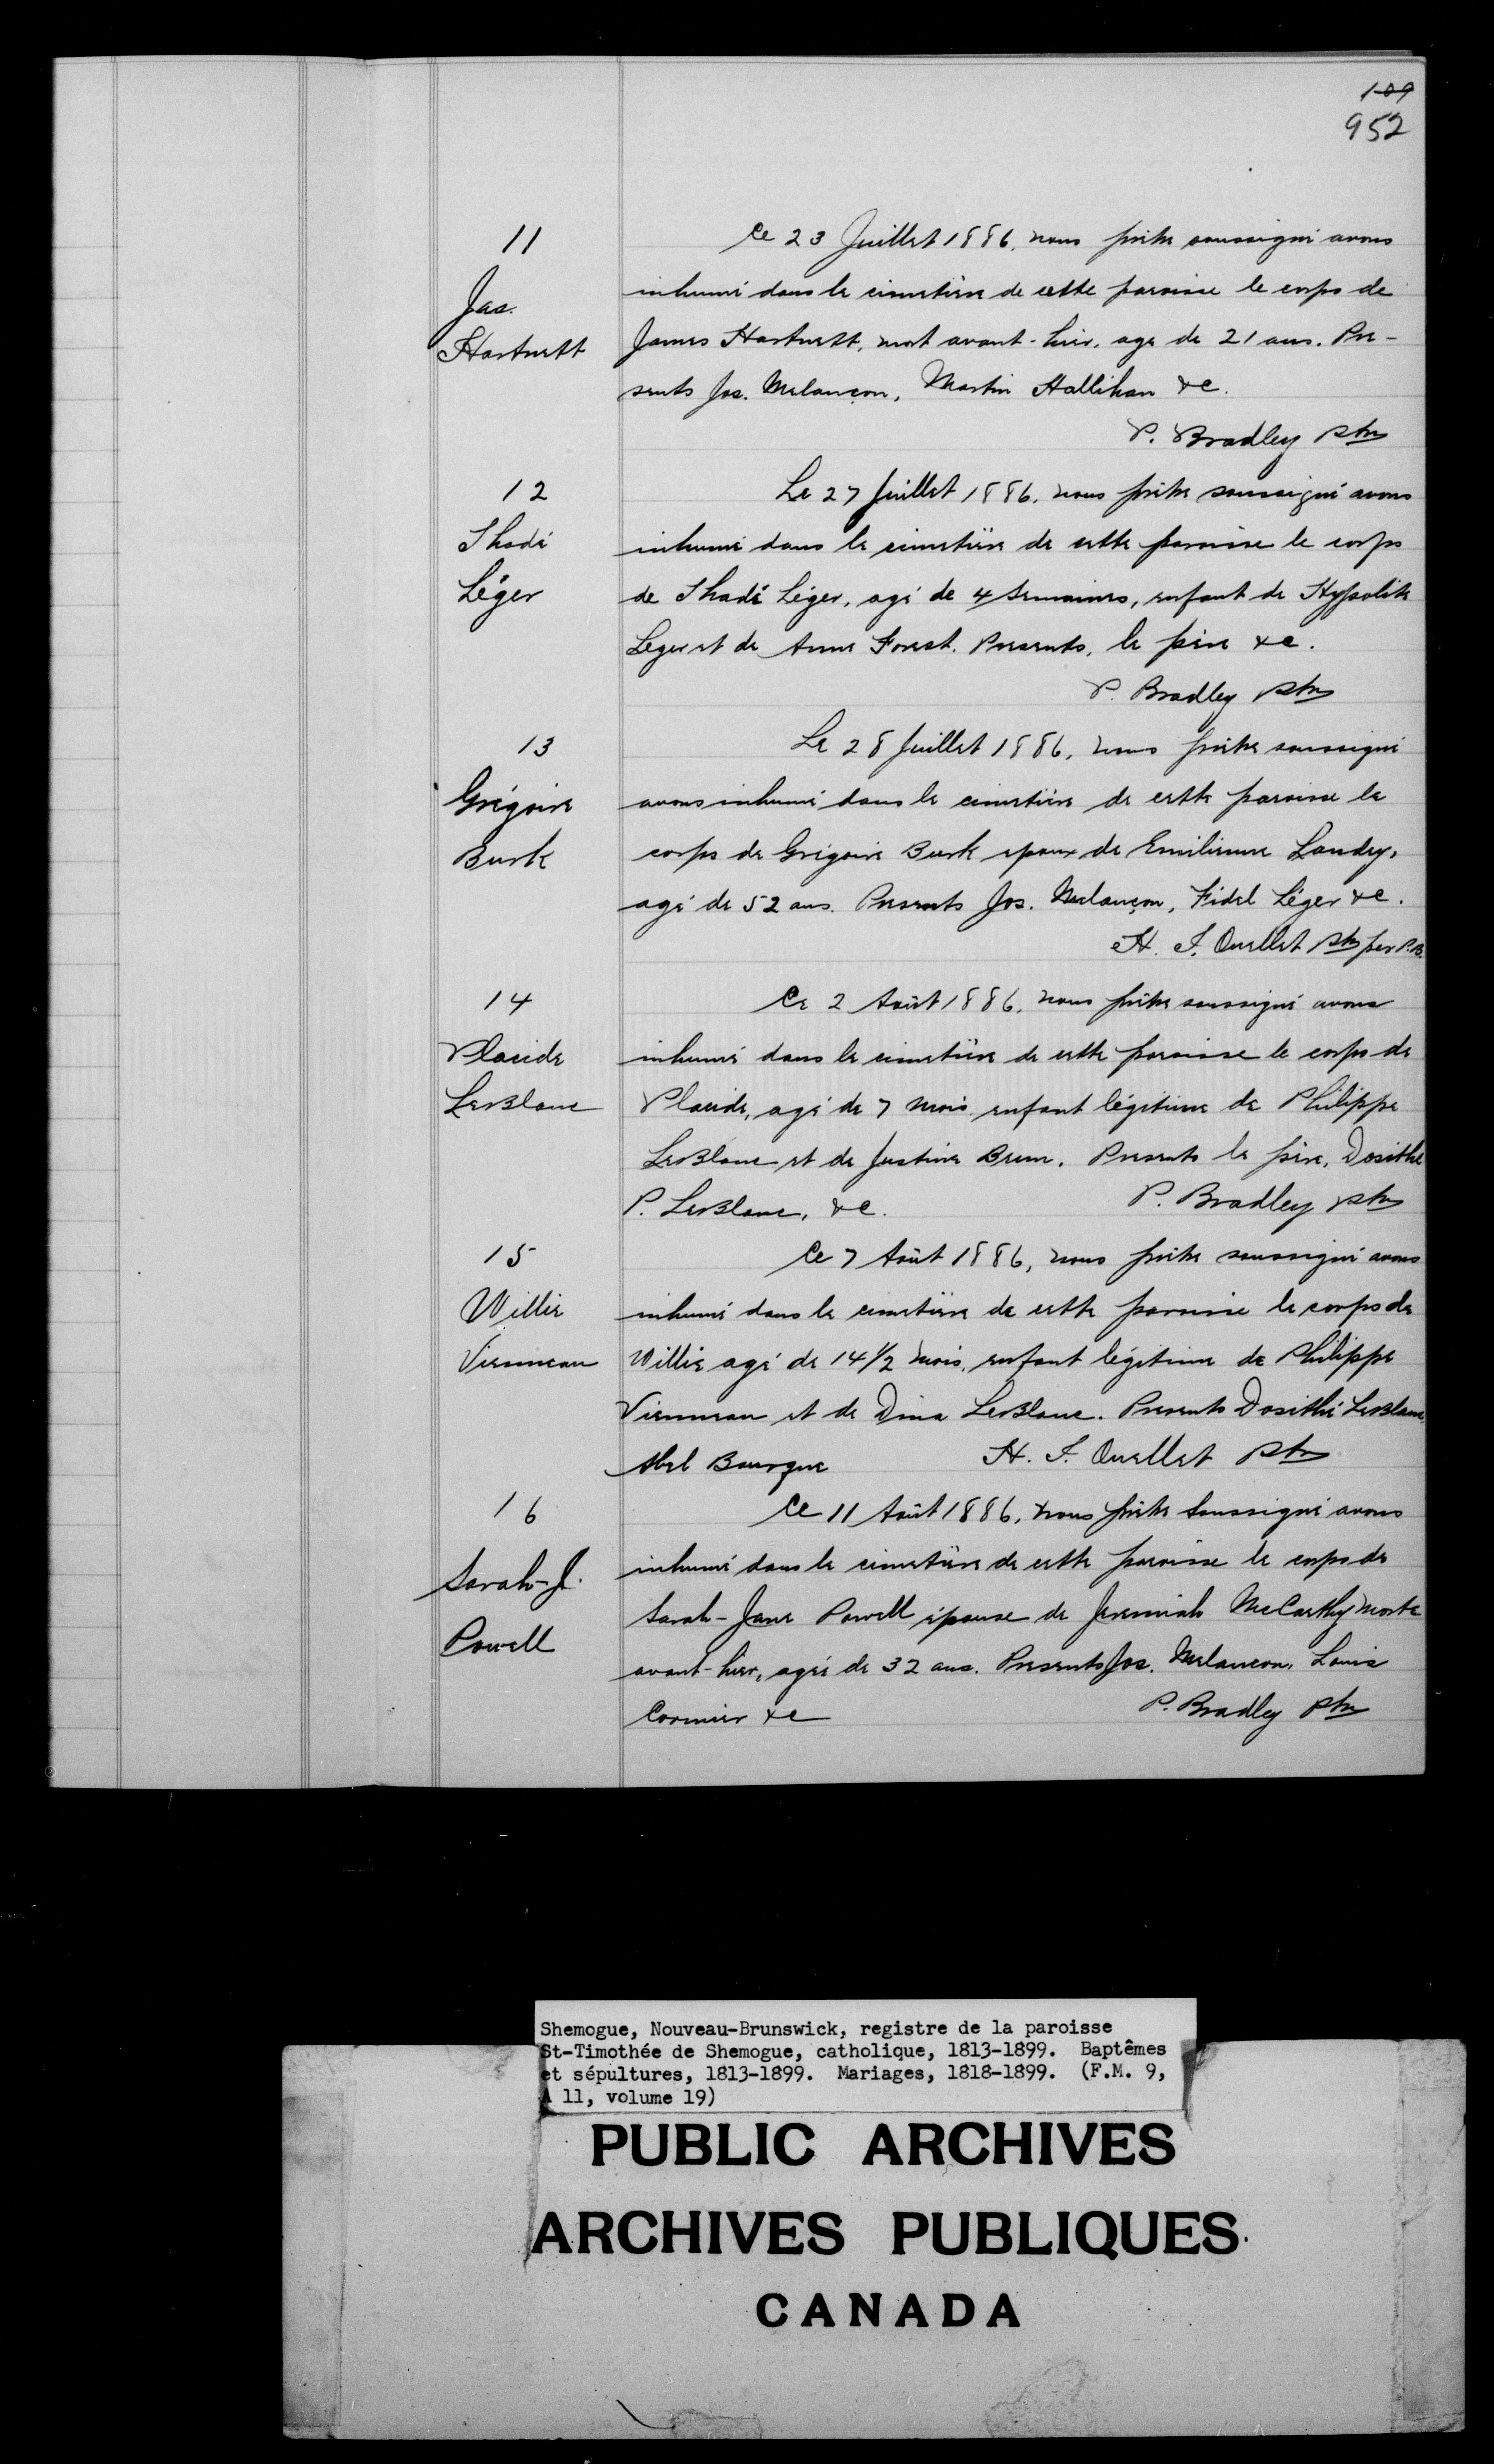 109
952
11
Jas.
Hartnett
Ce 23 Juillet 1886, nous prêtre soussigné avons
inhumé dans le cimetière de cette paroisse le corps de
James Hartnett, mort avant-hier, age de 21 ans. Pre-
sents Jos. Melançon, Martin Hallihan &c.
P. Bradley Ptre
12
Thadé
Léger
Le 27 Juillet 1886, nous prêtre soussigné avons
inhumé dans le cimetière de cette paroisse le corps
de Thadé Léger, agé de 4 semaines, enfant de Hypolite
Leger et de Anne Forest. Presents, le père &c.
P. Bradley Ptre
13
Grégoire
Burk
Le 28 Juillet 1886, nous prêtre soussigné
avons inhumé dans le cimetière de cette paroisse le
corps de Grégoire Burk epoux de Emilienne Landry,
agé de 52 ans. Presents Jos. Melançon, Fidel Léger &c.
H. J. Ouellet Ptre per P.B.
14
Placide
LeBlanc
Ce 2 Août 1886, nous prêtre soussigné avons
inhumé dans le cimetière de cette paroisse le corps de
Placide, agé de 7 mois, enfant légitime de Philippe
LeBlanc et de Justine Brun. Presents le père, Dosithe
P. LeBlanc, &c. P. Bradley Ptre
15
Willie
Vienneau
Ce 7 Août 1886, nous prêtre soussigné avons
inhumé dans le cimetière de cette paroisse le corps de
Willie agé de 14 1/2 mois, enfant légitime de Philippe
Vienneau et de Dina LeBlanc. Presents Dosithé LeBlanc,
Abel Bourque H. J. Ouellet Ptre
16
Sarah-J.
Powell
Ce 11 Août 1886, nous prêtre soussigné avons
inhumé dans le cimetière de cette paroisse le corps de
Sarah-Jane Powell épouse de Jeremiah McCarthy morte
avant-hier, agée de 32 ans. Presents Jos. Melancon, Louis
Cormier &c P. Bradley Ptre
Shemogue, Nouveau-Brunswick, registre de la paroisse
St-Timothée de Shemogue, catholique, 1813-1899. Baptêmes
et sépultures, 1813-1899. Mariages, 1818-1899. (F.M. 9,
A 11, volume 19)
PUBLIC ARCHIVES
ARCHIVES PUBLIQUES
CANADA